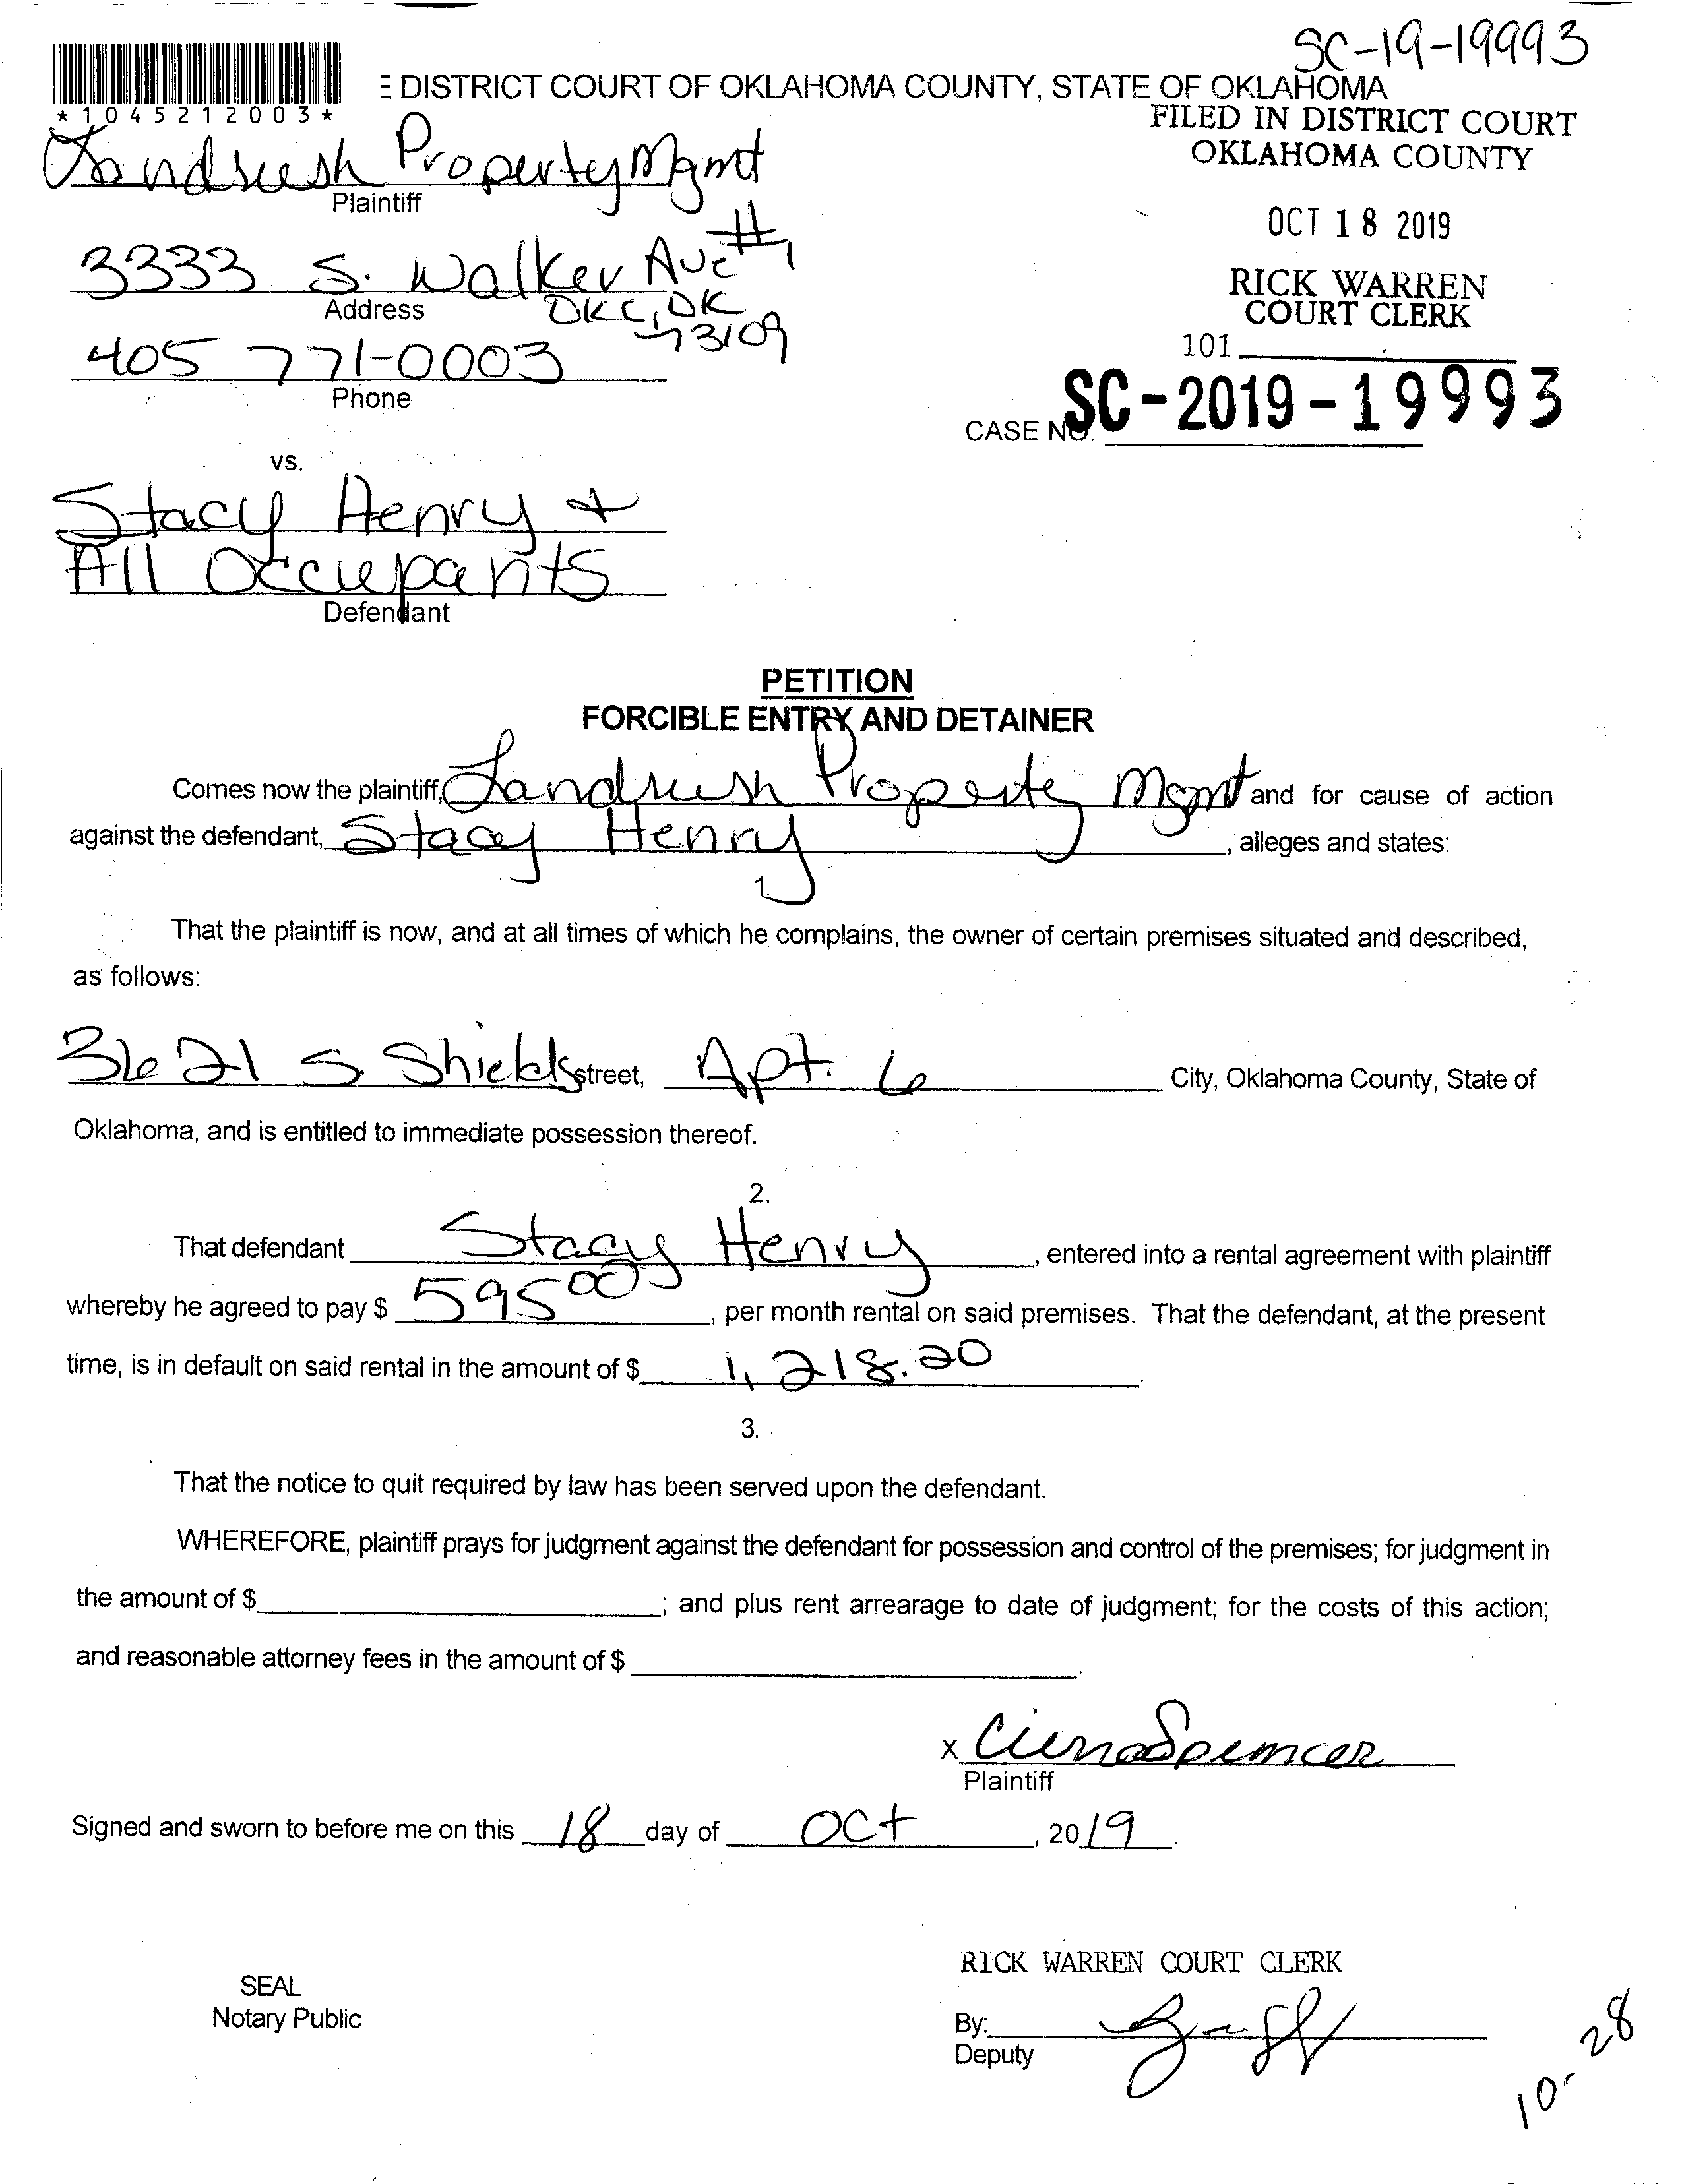 SC-19-19993
DISTRICT COURT OF OKLAHOMA COUNTY, STATE OF OKLAHOMA
*1045212003*
FILED IN DISTRICT COURT
OKLAHOMA COUNTY
Landrush Property Mgmt
Plaintiff
OCT 18 2019
3333 S. Walker Ave #1
Address
OKC, OK
73109
RICK WARREN
COURT CLERK
101
405 771-0003
Phone
CASE NO. SC-2019-19993
vs.
Stacy Henry +
All Occupants
Defendant
PETITION
FORCIBLE ENTRY AND DETAINER
Comes now the plaintiff, Landrush Property Mgmt and for cause of action
against the defendant, Stacy Henry, alleges and states:
1.
That the plaintiff is now, and at all times of which he complains, the owner of certain premises situated and described,
as follows:
3621 S Shields street, Apt. 6 City, Oklahoma County, State of
Oklahoma, and is entitled to immediate possession thereof.
2.
That defendant Stacy Henry, entered into a rental agreement with plaintiff
whereby he agreed to pay $ 595 00, per month rental on said premises. That the defendant, at the present
time, is in default on said rental in the amount of $ 1,218.20.
3.
That the notice to quit required by law has been served upon the defendant.
WHEREFORE, plaintiff prays for judgment against the defendant for possession and control of the premises; for judgment in
the amount of $ ; and plus rent arrearage to date of judgment; for the costs of this action;
and reasonable attorney fees in the amount of $ .
x Ciena Spemcer
Plaintiff
Signed and sworn to before me on this 18 day of Oct, 2019.
RICK WARREN COURT CLERK
SEAL
Notary Public
By:
Deputy
10-28